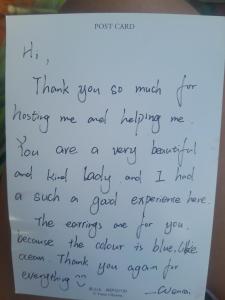 POST CARD
Hi,
Thank you so much for
hosting me and helping me.
You are a very beautiful
and kind Lady and I had
a such a good experience here.
The earrings are for you.
because the colour is blue. like
ocean. Thank you again for
everything